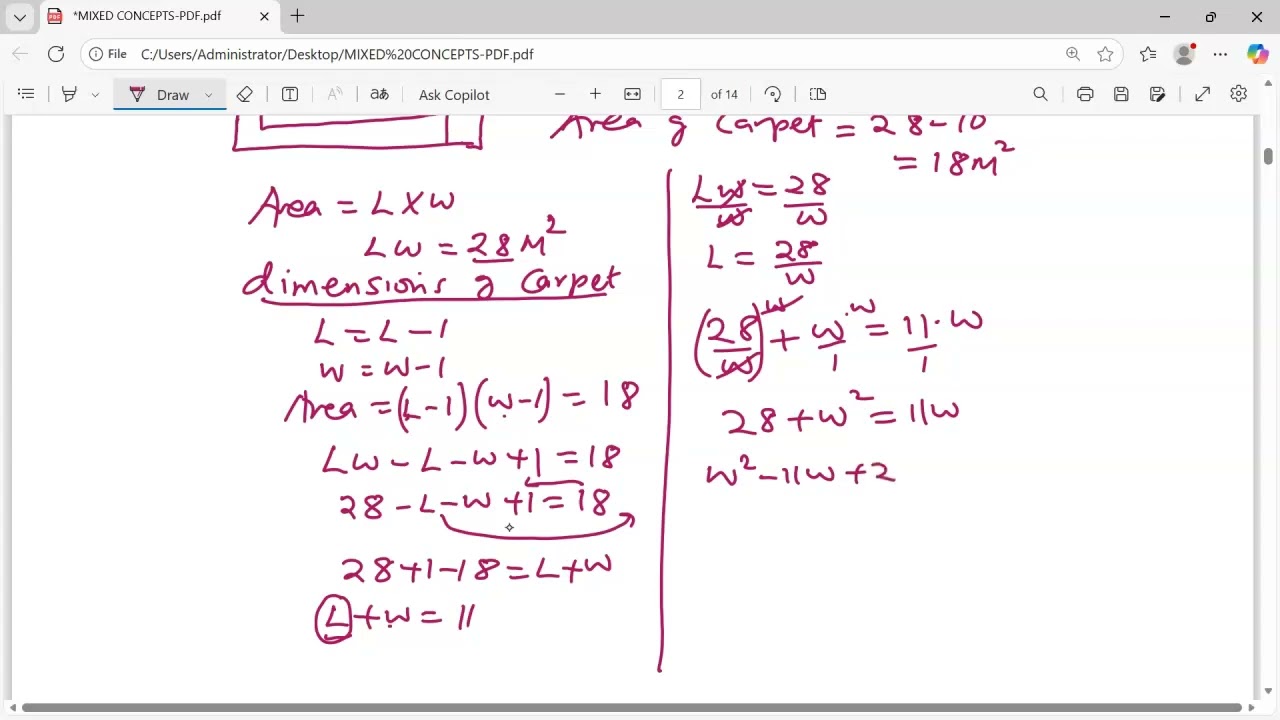 *MIXED CONCEPTS-PDF.pdf
File C:/Users/Administrator/Desktop/MIXED%20CONCEPTS-PDF.pdf
Draw
Ask Copilot
2 of 14
Area g Carpet = 28-10
= 18M²
Area = L X W
LW = 28 M²
dimensions g Carpet
L = L - 1
W = W - 1
Area = (L-1)(W-1) = 18
LW - L - W + 1 = 18
28 - L - W + 1 = 18
28 + 1 - 18 = L + W
L + W = 11
LW/W = 28/W
L = 28/W
(28/W)W + W/1 · W = 11/1 · W
28 + W² = 11W
W² - 11W + 2